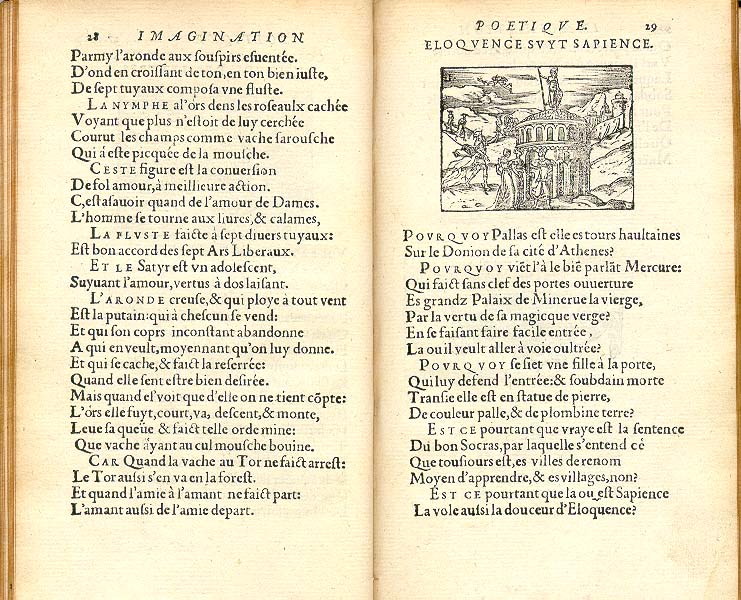 28 IMAGINATION
Parmy l'aronde aux souspirs esuentée.
D'ond en croissant de ton, en ton bien iuste,
De sept tuyaux composa vne fluste.
LA NYMPHE al'ors dens les roseaulx cachée
Voyant que plus n'estoit de luy cerchée
Courut les champs comme vache farousche
Qui à esté picquée de la mousche.
CESTE figure est la conuersion
De fol amour, à meillieure action.
C,est asauoir quand de l'amour de Dames.
L'homme se tourne aux liures, & calames,
LA FLVSTE faicte à sept diuers tuyaux:
Est bon accord des sept Ars Liberaux.
ET LE Satyr est vn adolescent,
Suyuant l'amour, vertus à dos laisant.
L'ARONDE creuse, & qui ploye à tout vent
Est la putain: qui à chescun se vend:
Et qui son coprs inconstant abandonne
A qui en veult, moyennant qu'on luy donne.
Et qui se cache, & faict la reserrée:
Quand elle sent estre bien desirée.
Mais quand el'voit que d'elle on ne tient cõpte:
L'ors elle fuyt, court, va, descent, & monte,
Leue sa queüe & faict telle orde mine:
Que vache ayant au cul mousche bouine.
CAR Quand la vache au Tor ne faict arrest:
Le Tor aussi s'en va en la forest.
Et quand l'amie à l'amant ne faict part:
L'amant aussi de l'amie depart.
POETIQVE. 29
ELOQVENCE SVYT SAPIENCE.
POVRQVOY Pallas est elle es tours haultaines
Sur le Donion de sa cité d'Athenes?
POVRQVOY viẽt l'à le biẽ parlãt Mercure:
Qui faict sans clef des portes ouuerture
Es grandz Palaix de Minerue la vierge,
Par la vertu de sa magicque verge?
En se faisant faire facile entrée,
La ou il veult aller à voie oultrée?
POVRQVOY se siet vne fille à la porte,
Qui luy defend l'entrée: & soubdain morte
Transie elle est en statue de pierre,
De couleur palle, & de plombine terre?
EST CE pourtant que vraye est la sentence
Du bon Socras, par laquelle s'entend cé
Que tousiours est, es villes de renom
Moyen d'apprendre, & es villages, non?
EST CE pourtant que la ou est Sapience
La vole aussi la douceur d'Eloquence?